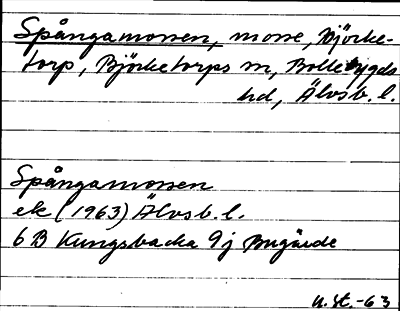 Spångamossen, mosse, Björke-
torp, Björketorps sn, Bollebygds
hd, Älvsb. l.
Spångamossen
ek (1963) Älvsb. l.
6 B Kungsbacka 9j Bugärde
u. st. -63